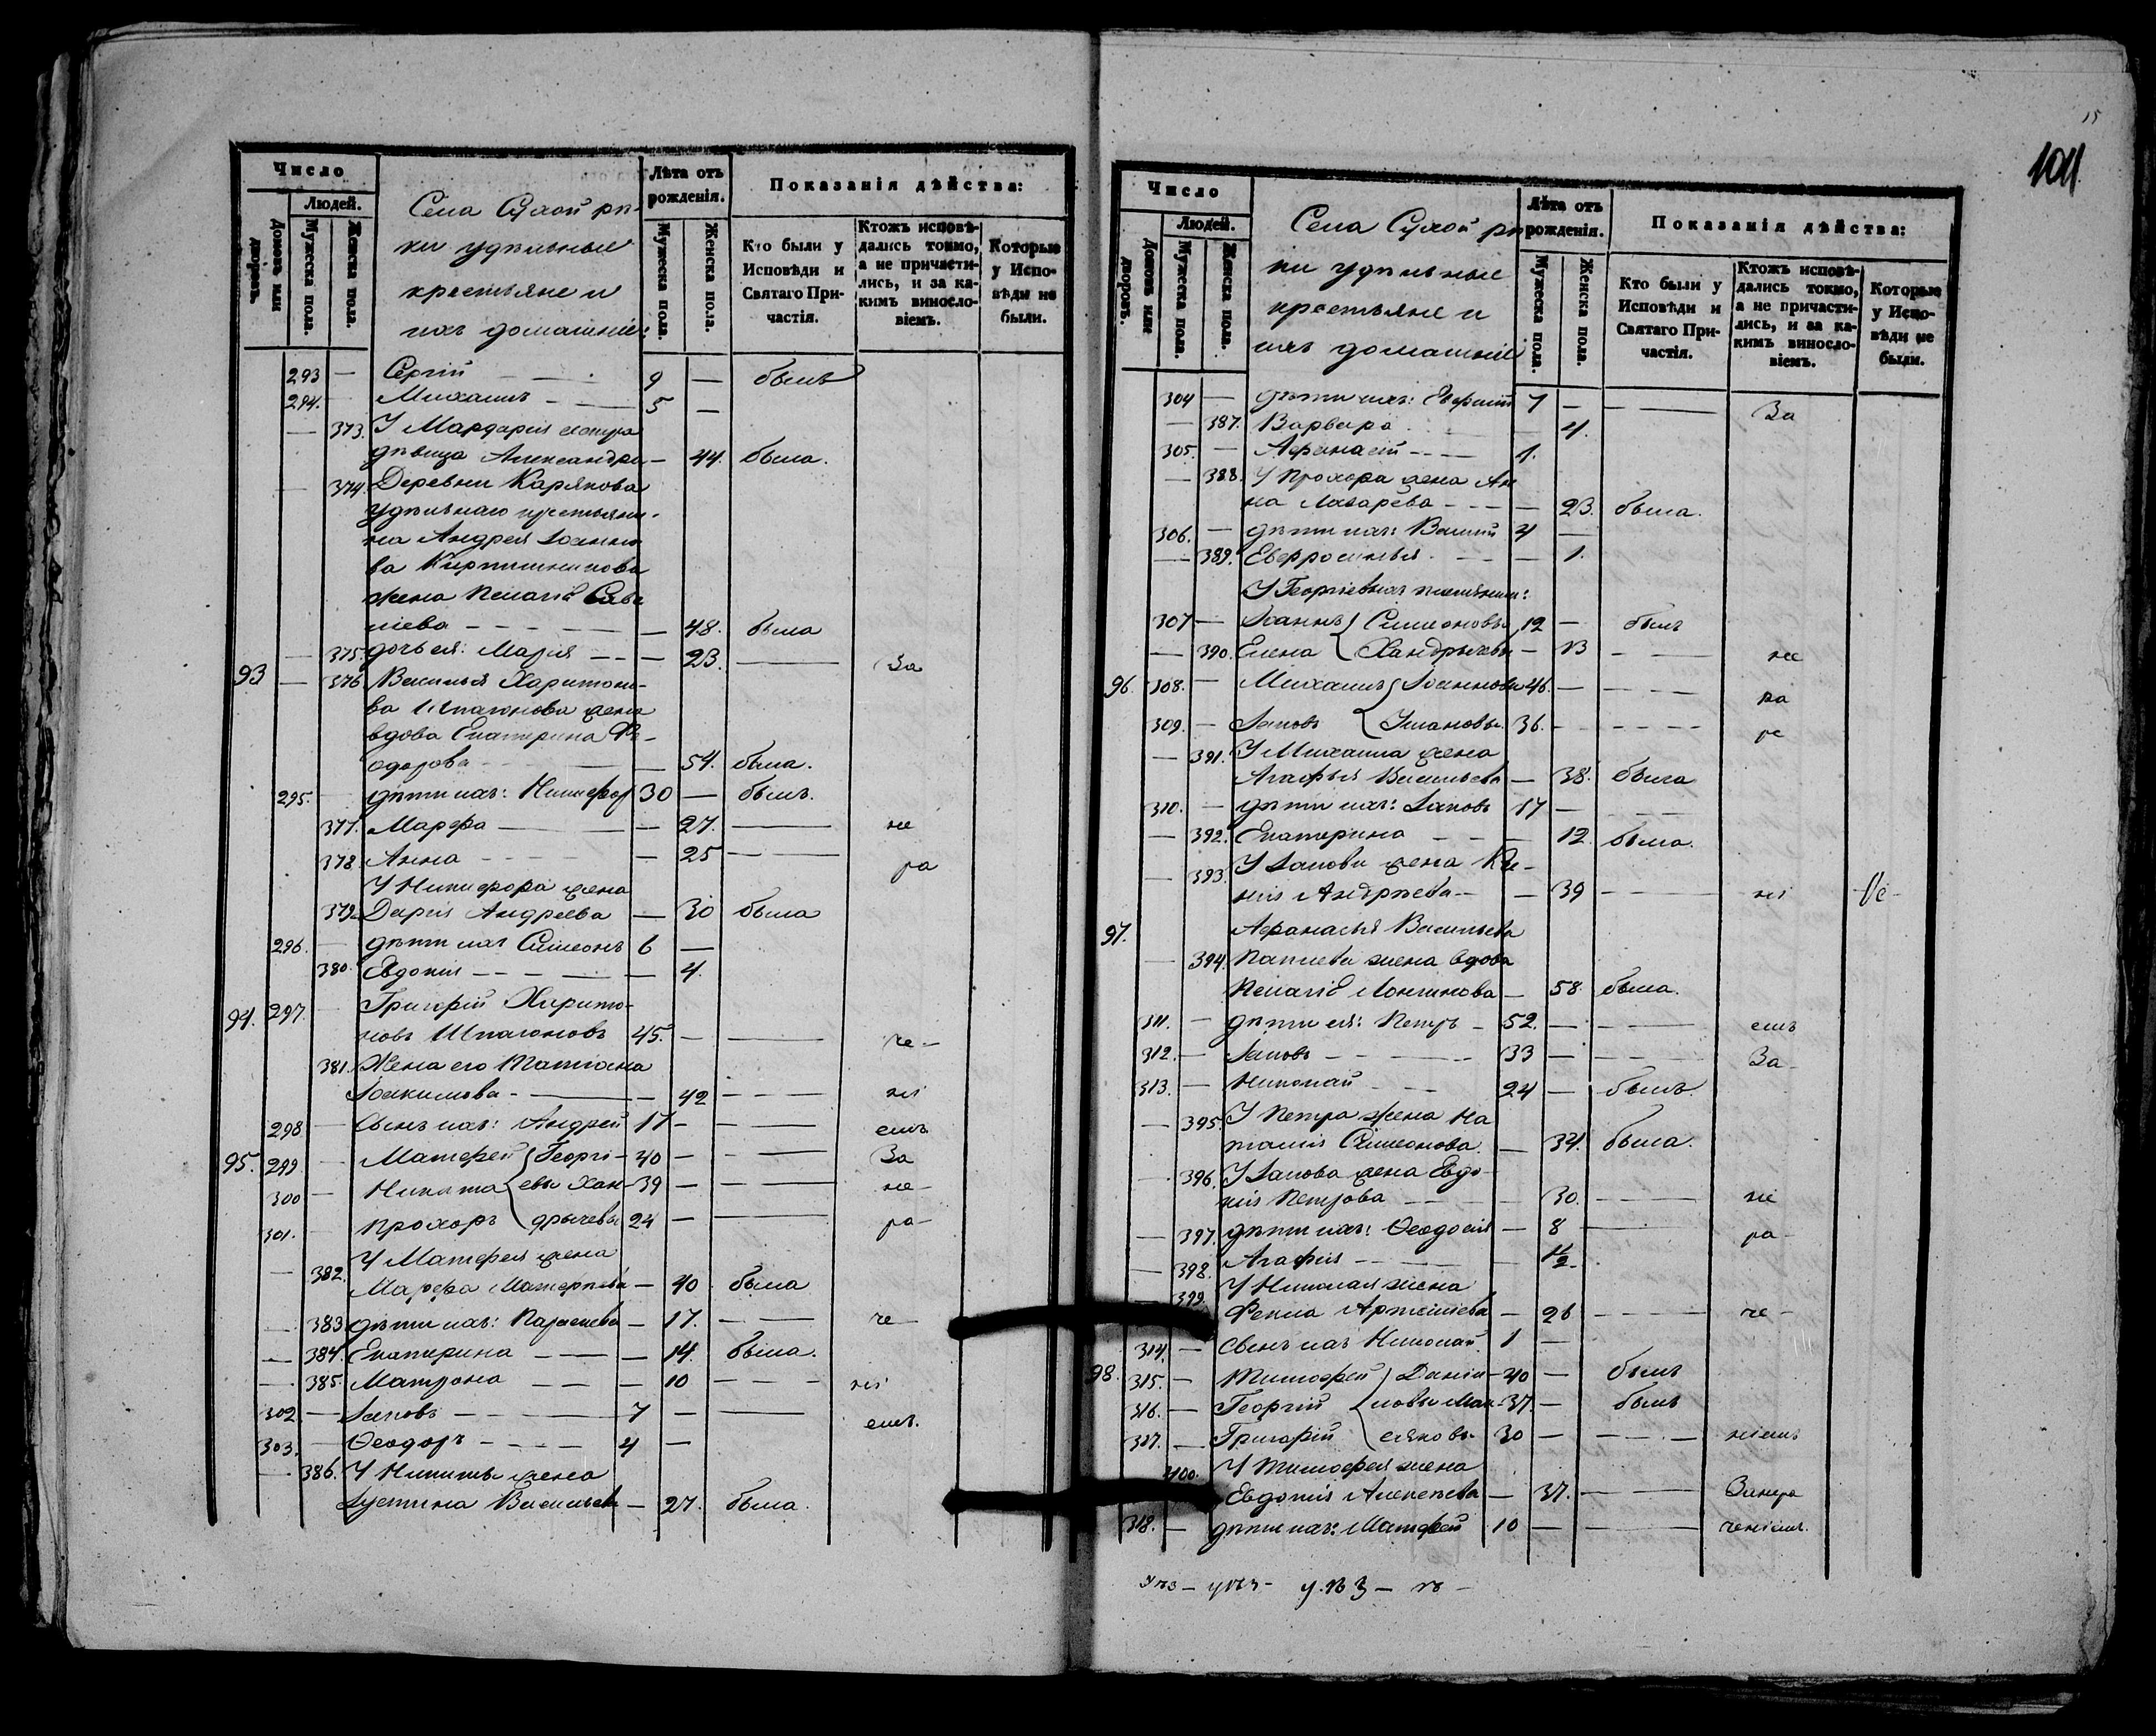 Число
Людей.
Домовъ или дворовъ.
Мужеска пола.
Женска пола.
Села Сухой рѣ-
ки удѣльные
крестьяне и
ихъ домашніе:
Лѣта отъ рожденія.
Мужеска пола.
Женска пола.
Показанія дѣйства:
Кто были у Исповѣди и Святаго Причастія.
Ктожъ исповѣдались токмо, а не причастились, и за какимъ винословіемъ.
Которые у Исповѣди не были.
293 — Сергій 9 — былъ
294. Михаилъ 5 —
— 373. У Мардарія сестра
дѣвица Александра — 44. была.
— 374. Деревни Карякова
удѣльнаго крестьяни-
на Андрея Іоанно-
ва Кирпишникова
жена Пелагія Саве
ліева — 48. была
— 375. дочь ея: Марія — 23. — За
93 — 376 Василья Харитоно-
ва Шпагонова жена
вдова Екатерина Ѳе-
одорова — 54. была.
295. дѣти ихъ: Никифор 30 — былъ.
377. Марфа — 27. — не
378. Анна — 25 — ра
У Никифора жена
379. Дарія Андреева — 30 была
296. — дѣти ихъ Симеонъ 6 —
380. Евдокія — 4.
94. 297. Григорій Харито-
новъ Шпагоновъ 45. — че-
381. Жена его Татіана
Іоакимова — 42 — ні
298 — Сынъ ихъ: Андрей 17 — емъ
95. 299 — Матфей Георгі- 40 — За
300 — Никита евы Хан- 39 — не-
301. Прохоръ дрычевы 24 — ра-
— 382. У Матфея жена
Марфа Матфеева — 40 была
383. дѣти ихъ: Параскева — 17. — че-
— 384. Екатерина — 14. была.
385. Матрона — 10 — ні
302 — Іаковъ 7 — емъ.
303. — Ѳеодоръ 4 —
— 386. У Никиты жена
Іустина Васильев — 27. была.
15
101
Число
Людей.
Домовъ или дворовъ.
Мужеска пола.
Женска пола.
Села Сухой рѣ
ки удѣльные
крестьяне и
ихъ домашніе
Лѣта отъ рожденія.
Мужеска пола.
Женска пола.
Показанія дѣйства:
Кто были у Исповѣди и Святаго Причастія.
Ктожъ исповѣдались токмо, а не причастились, и за какимъ винословіемъ.
Которые у Исповѣди не были.
304 — дѣти ихъ: 7 — За
— 387. Варвара 4.
305. — Афанасій 1.
— 388. У Прохора жена Ан
на Лазарева — 23. была.
306. — дѣти ихъ: Василій 4 —
— 389. Евфросинья — 1.
У Георгіевыхъ племянни:
307 — Іоаннъ Симеоновы 12 — былъ
— 390. Елена Хандрычевы — 13 — не
96. 308. — Михаилъ Іоанновы 46. — ра
309 — Іаковъ Ушановы. 36. — ре
— 391. У Михаила жена
Агафья Васильева — 38. была
310. — дѣти ихъ: Іаковъ 17 —
— 392. Екатерина — 12 была.
— 393. У Іакова жена Кс-
нія Андрѣева — 39 — ні
97. Афанасья Васильева
— 394. жена вдова
Пелагія Лонгинова — 58. была.
311. — дѣти ея: Петръ 52. — емъ
312. — Іаковъ 33 — За-
313. — Николай 24 — былъ.
— 395. У Петра жена На
талія Симеонова. — 34. была.
— 396. У Іакова жена Евдо-
кія Петрова — 30. — ні
— 397. дѣти ихъ: Ѳеодосія — 8 — ра-
— 398. Агафія — 1/2
399. У Николая жена
Фекла Артемьева — 26 — че-
314. — Сынъ ихъ Николай. 1 —
98. 315. — Тимофей Дані- 40 — былъ
316. — Георгій ловы Мак- 37. — былъ
317. — Григорій сяковы 30 — ніемъ
400. У Тимофея жена
Евдокія Алексѣева — 37. — Занера
318. — дѣти ихъ: Матфей 10 — ченіемъ.